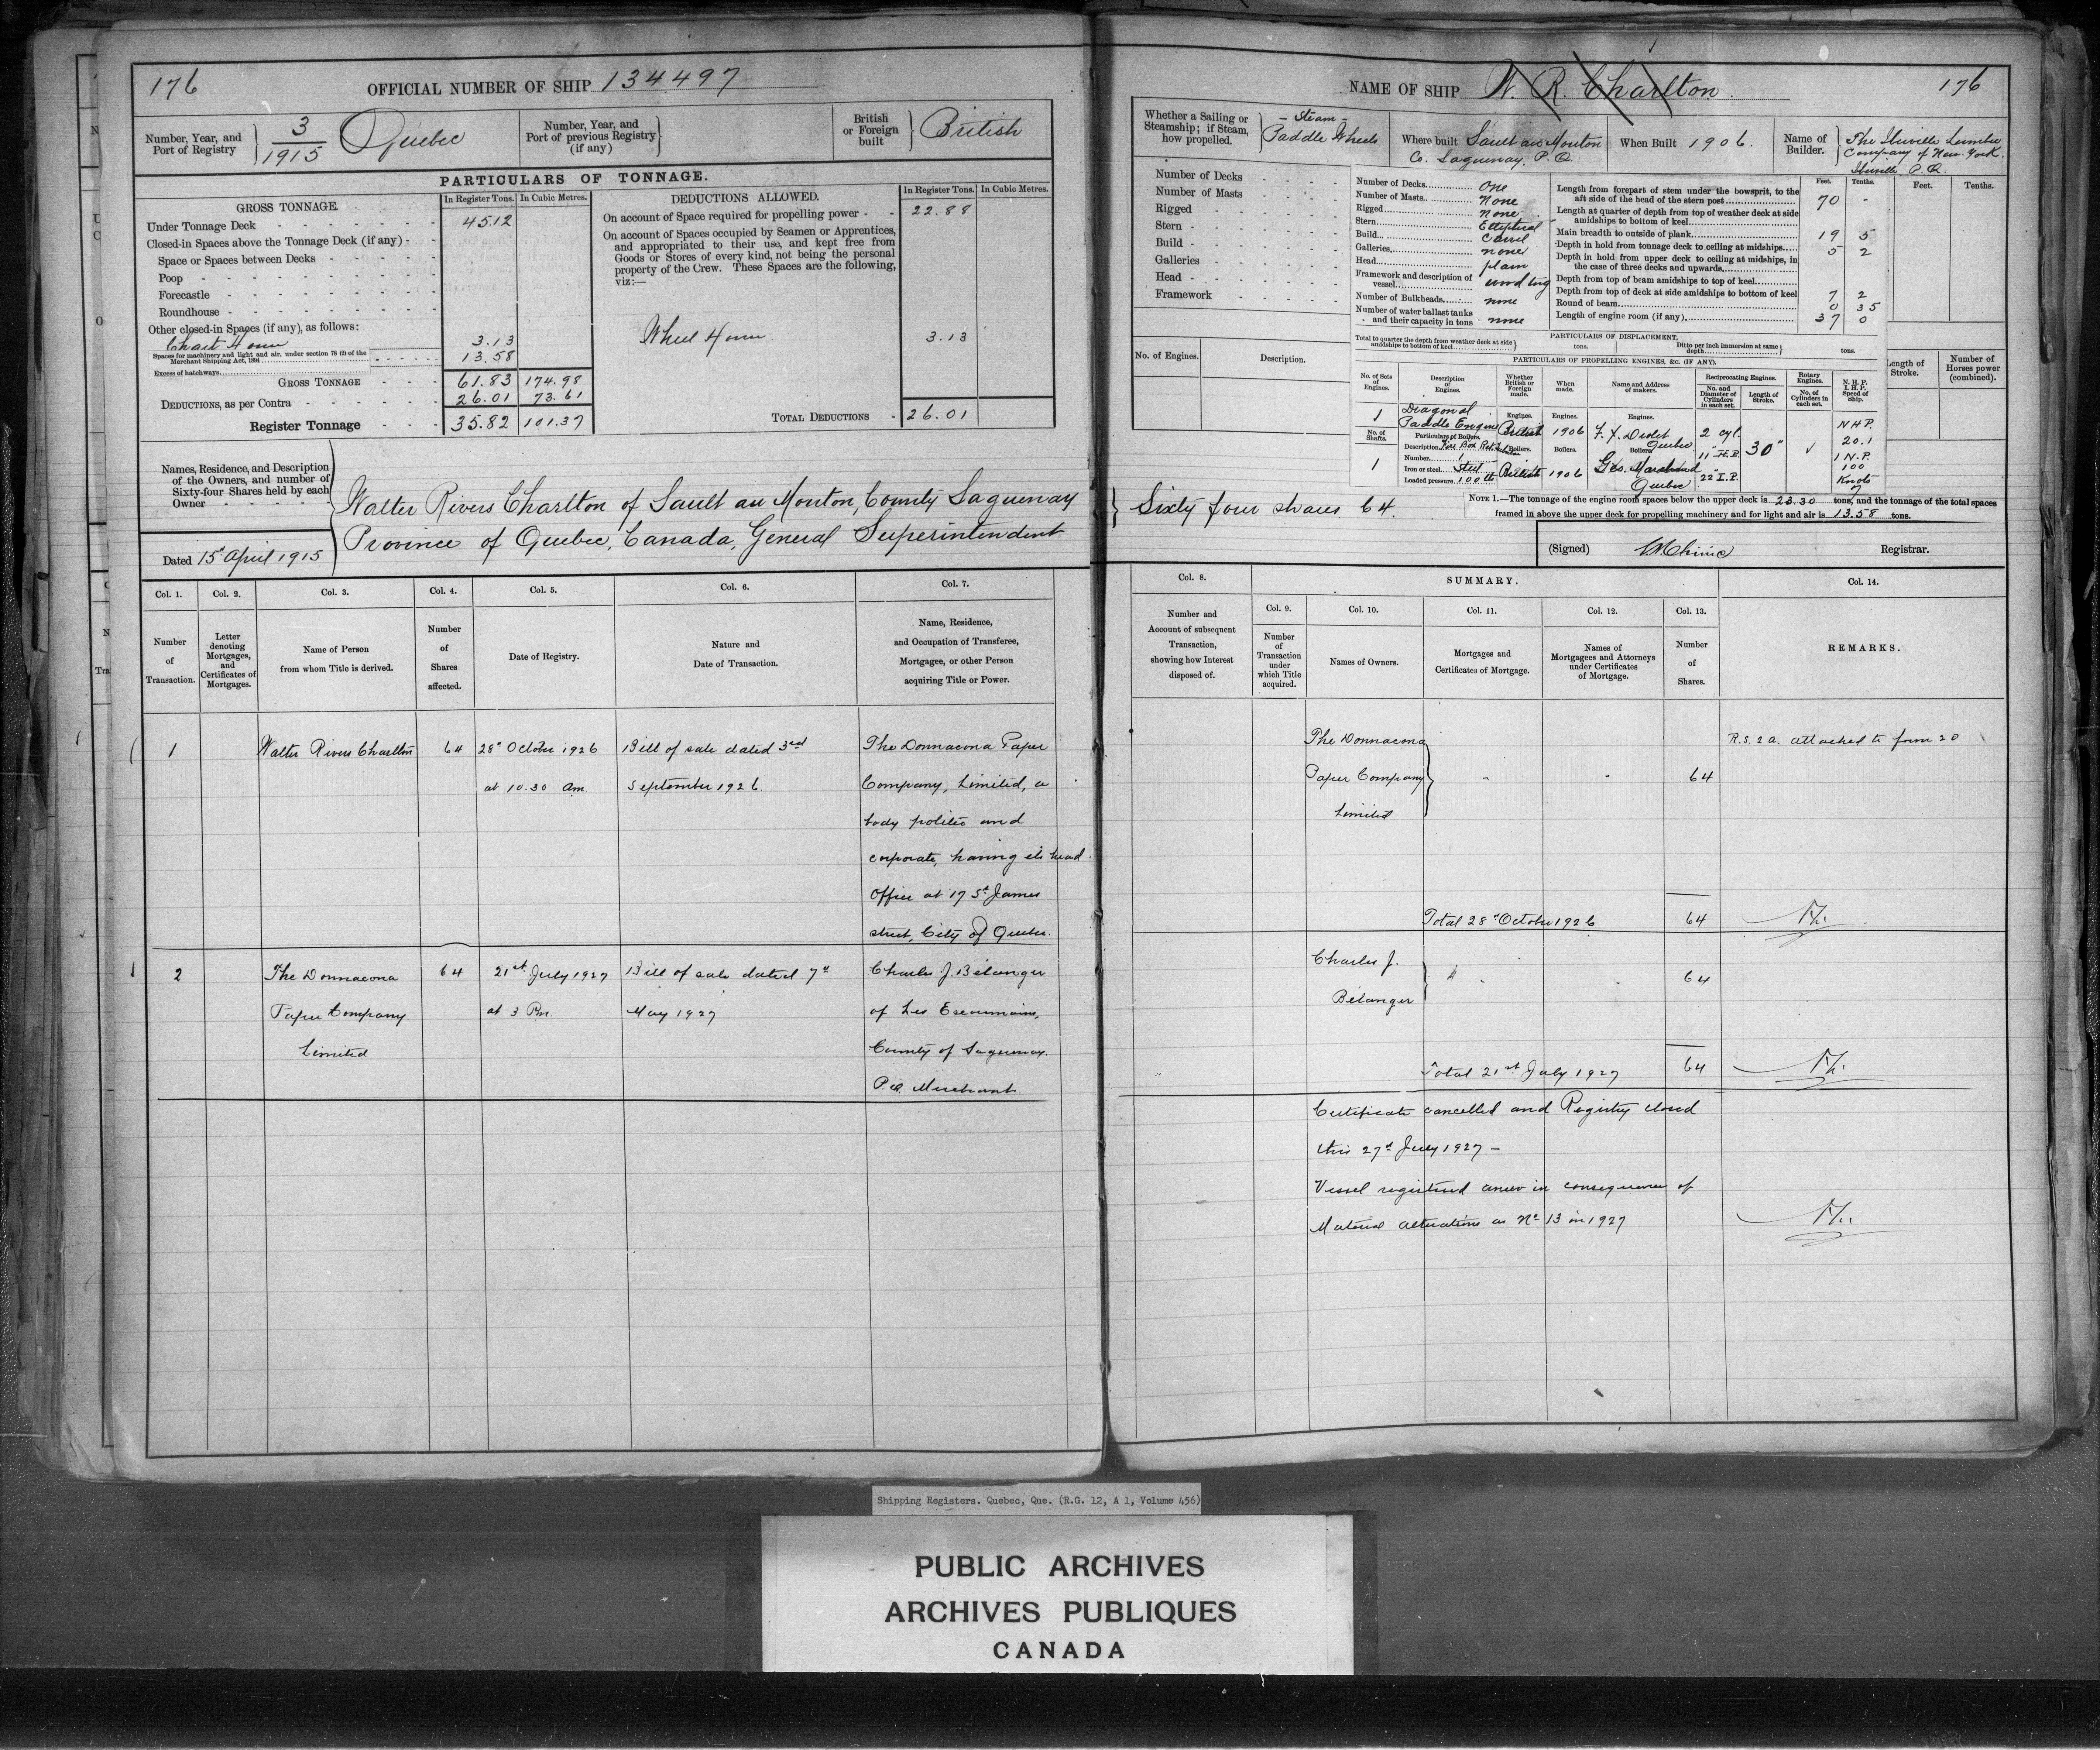 176
OFFICIAL NUMBER OF SHIP 134497
Number, Year, and Port of Registry 3/1915 Quebec
Number, Year, and Port of previous Registry (if any)
British or Foreign built British
PARTICULARS OF TONNAGE.
GROSS TONNAGE. In Register Tons. In Cubic Metres.
Under Tonnage Deck 45.12
Closed-in Spaces above the Tonnage Deck (if any)
Space or Spaces between Decks
Poop
Forecastle
Roundhouse
Other closed-in Spaces (if any), as follows:
Chart House 3.13
Spaces for machinery and light and air, under section 78 (2) of the Merchant Shipping Act, 1894 13.58
Excess of hatchways
GROSS TONNAGE 61.83 174.98
DEDUCTIONS, as per Contra 26.01 73.61
Register Tonnage 35.82 101.37
DEDUCTIONS ALLOWED. In Register Tons. In Cubic Metres.
On account of Space required for propelling power 22.88
On account of Spaces occupied by Seamen or Apprentices,
and appropriated to their use, and kept free from
Goods or Stores of every kind, not being the personal
property of the Crew. These Spaces are the following,
viz:—
Wheel House 3.13
TOTAL DEDUCTIONS 26.01
Names, Residence, and Description
of the Owners, and number of
Sixty-four Shares held by each
Owner
Walter Rivers Charlton of Sault au Mouton, County Saguenay
Province of Quebec, Canada, General Superintendent
Dated 15th April 1915
Col. 1. Col. 2. Col. 3. Col. 4. Col. 5. Col. 6. Col. 7.
Number of Transaction.
Letter denoting Mortgages, and Certificates of Mortgages.
Name of Person from whom Title is derived.
Number of Shares affected.
Date of Registry.
Nature and Date of Transaction.
Name, Residence, and Occupation of Transferee, Mortgagee, or other Person acquiring Title or Power.
1 Walter Rivers Charlton 64 28th October 1926 Bill of sale dated 3rd The Donnacona Paper
at 10.30 am September 1926. Company, Limited, a
body politic and
corporate, having its head
Office at 17 St James
street, City of Quebec.
2 The Donnacona 64 21st July 1927 Bill of sale dated 7th Charles J. Bélanger
Paper Company at 3 Pm. May 1927 of Les Escoumains,
Limited County of Saguenay.
P.Q. Merchant
NAME OF SHIP W. R. Charlton
176
Whether a Sailing or Steamship; if Steam, how propelled. - Steam - Paddle Wheels
Where built Sault au Mouton Co. Saguenay. P. Q.
When Built 1906.
Name of Builder. The Lumber Company of New York. P.Q.
Number of Decks
Number of Masts
Rigged
Stern
Build
Galleries
Head
Framework
No. of Engines. Description.
Number of Decks One
Number of Masts None
Rigged None
Stern Elliptical
Build Carvel
Galleries none
Head plain
Framework and description of vessel wood tug
Number of Bulkheads none
Number of water ballast tanks and their capacity in tons none
Feet. Tenths.
Length from forepart of stem under the bowsprit, to the aft side of the head of the stern post 70 -
Length at quarter of depth from top of weather deck at side amidships to bottom of keel
Main breadth to outside of plank 19 5
Depth in hold from tonnage deck to ceiling at midships 5 2
Depth in hold from upper deck to ceiling at midships, in the case of three decks and upwards
Depth from top of beam amidships to top of keel
Depth from top of deck at side amidships to bottom of keel 7 2
Round of beam 0 35
Length of engine room (if any) 37 0
Feet. Tenths.
PARTICULARS OF DISPLACEMENT.
Total to quarter the depth from weather deck at side amidships to bottom of keel tons. Ditto per inch immersion at same depth tons.
PARTICULARS OF PROPELLING ENGINES, &c. (IF ANY).
No. of Sets of Engines. Description of Engines. Whether British or Foreign made. When made. Name and Address of makers. Reciprocating Engines. No. and Diameter of Cylinders in each set. Length of Stroke. Rotary Engines. No. of Cylinders in each set. N.H.P. I.H.P. Speed of Ship.
1 Diagonal Paddle Engine Engines. British Engines. 1906 Engines. F. X. Drolet Quebec 2 cyl. 11" H.P. 22" I.P. 30" N H P. 20.1 I N.P. 100 Knots 7
No. of Shafts. 1
Particulars of Boilers.
Description Fire Box
Number 1
Iron or steel Steel
Loaded pressure 100 lb
Boilers. British Boilers. 1906 Boilers. Quebec
Length of Stroke.
Number of Horses power (combined).
NOTE 1.—The tonnage of the engine room spaces below the upper deck is 23.30 tons, and the tonnage of the total spaces
framed in above the upper deck for propelling machinery and for light and air is 13.58 tons.
Sixty four shares 64.
(Signed) Registrar.
Col. 8. SUMMARY. Col. 14.
Col. 9. Col. 10. Col. 11. Col. 12. Col. 13.
Number and Account of subsequent Transaction, showing how Interest disposed of.
Number of Transaction under which Title acquired.
Names of Owners.
Mortgages and Certificates of Mortgage.
Names of Mortgagees and Attorneys under Certificates of Mortgage.
Number of Shares.
REMARKS.
The Donnacona R.S. 2 a. attached to form 20
Paper Company 64
Limited
Total 28th October 1926 64
Charles J. 64
Bélanger
Total 21st July 1927 64
Certificate cancelled and Registry closed
this 27th July 1927 —
Vessel registered anew in consequence of
Material alterations as No 13 in 1927
Shipping Registers. Quebec, Que. (R.G. 12, A 1, Volume 456)
PUBLIC ARCHIVES
ARCHIVES PUBLIQUES
CANADA